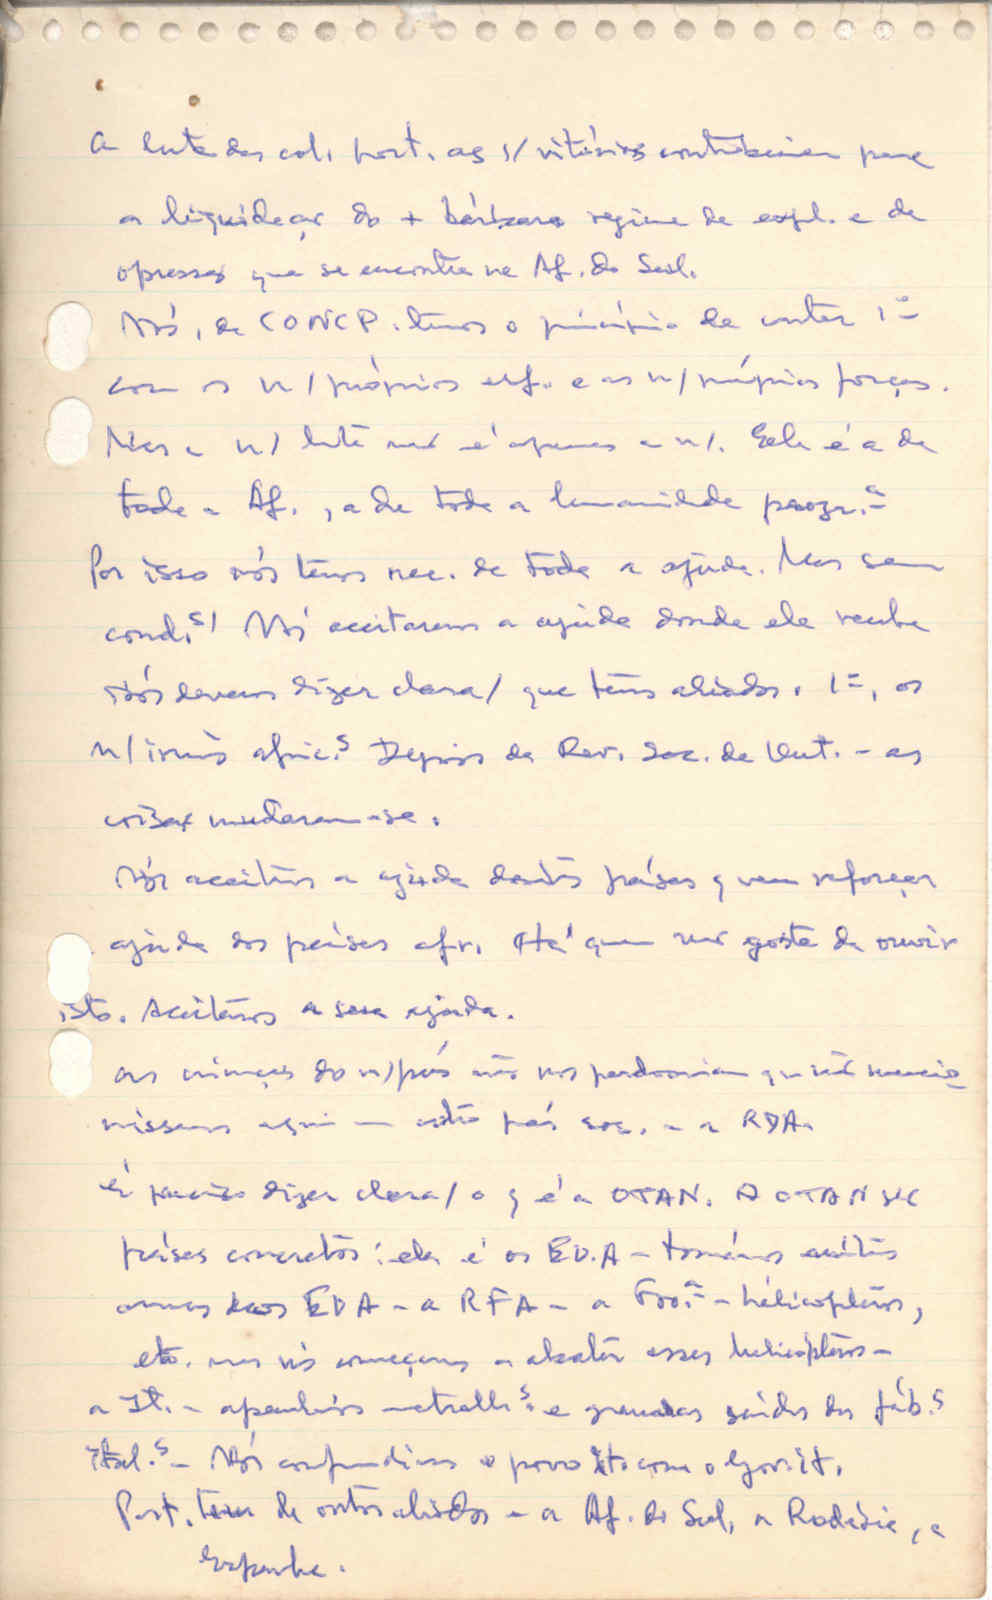 A luta das col. port. as s/ vitórias contribuirão para
a liquidação do + bárbaro regime de expl. e de
opressão que se encontra na Af. do Sul.
Nós, da CONCP. temos o princípio de contar 1º
com os n/ próprios esf. e as n/ próprias forças.
Mas a n/ luta não é apenas a n/. Ela é a de
toda a Af., a de toda a humanidade progr.ª
Por isso nós temos nec. de toda a ajuda. Mas sem
cond.s! Nós aceitaremos a ajuda donde ela venha
Nós devemos dizer clara/ que temos aliados. 1º, os
n/ irmãos afric.s Depois da Rev. Soc. de Out. - as
coisas mudaram-se.
Nós aceitamos a ajuda destes países q vem reforçar
ajuda dos países afr. Há quem não goste de ouvir
isto. Aceitamos a sua ajuda.
As crianças do n/ país não nos perdoariam que não mencio
nássemos aqui um outro país soc. - a RDA.
É preciso dizer clara/ o q é a OTAN. A OTAN são
países concretos: ela é os EUA - tomámos muitas
armas dos EUA - a RFA - a Frª - hélicopteros,
etc. mas nós começamos a abater esses helicópteros -
a It. - apanhámos metralh.s e granadas saídas das fáb.s
ital.s - Nós confundimos o povo it. com o Gov. it.
Port. tem de outros aliados - a Af. do Sul, a Rodésia, a
Espanha.